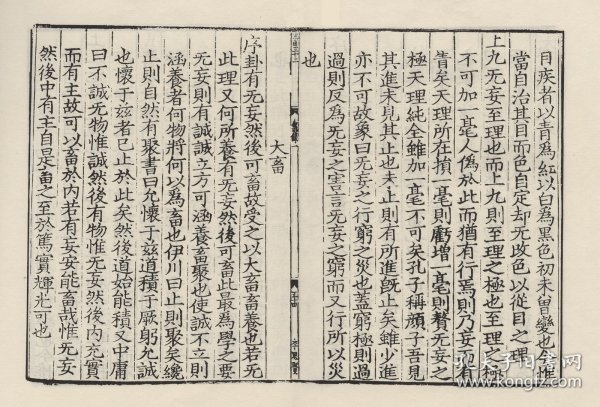 目疾者以青為紅以白為黑色初未曾變也今惟
當自治其目而色自定却无改色以從目之理
上九无妄至理也而上九則至理之極也至理之極
不可加一毫人偽於此而猶有行焉則乃妄而有
眚矣天理所在損一毫則虧增一毫則贅无妄之
極天理純全雖加一毫不可矣孔子稱顔子吾見
其進未見其止也未止則有所進既止矣雖少進
亦不可故象曰无妄之行窮之災也蓋窮極則過
過則反為无妄之害言无妄之窮而又行所以災
也
大畜
序卦有无妄然後可畜故受之以大畜畜養也若无
此理又何所養有无妄然後可畜此最為學之要
无妄則有誠誠立方可涵養畜聚也使誠不立則
涵養者何物將何以為畜也伊川曰止則聚矣纔
止則自然有聚書曰允懷于兹道積于厥躬允誠
也懷于兹者已止於此矣然後道始能積又中庸
曰不誠无物惟誠然後有物惟无妄然後内充實
而有主故可以畜於内若有妄安能畜哉惟无妄
然後中有主自是畜之至於篤實輝光可也
孔夫子旧书网
www.kongfz.com